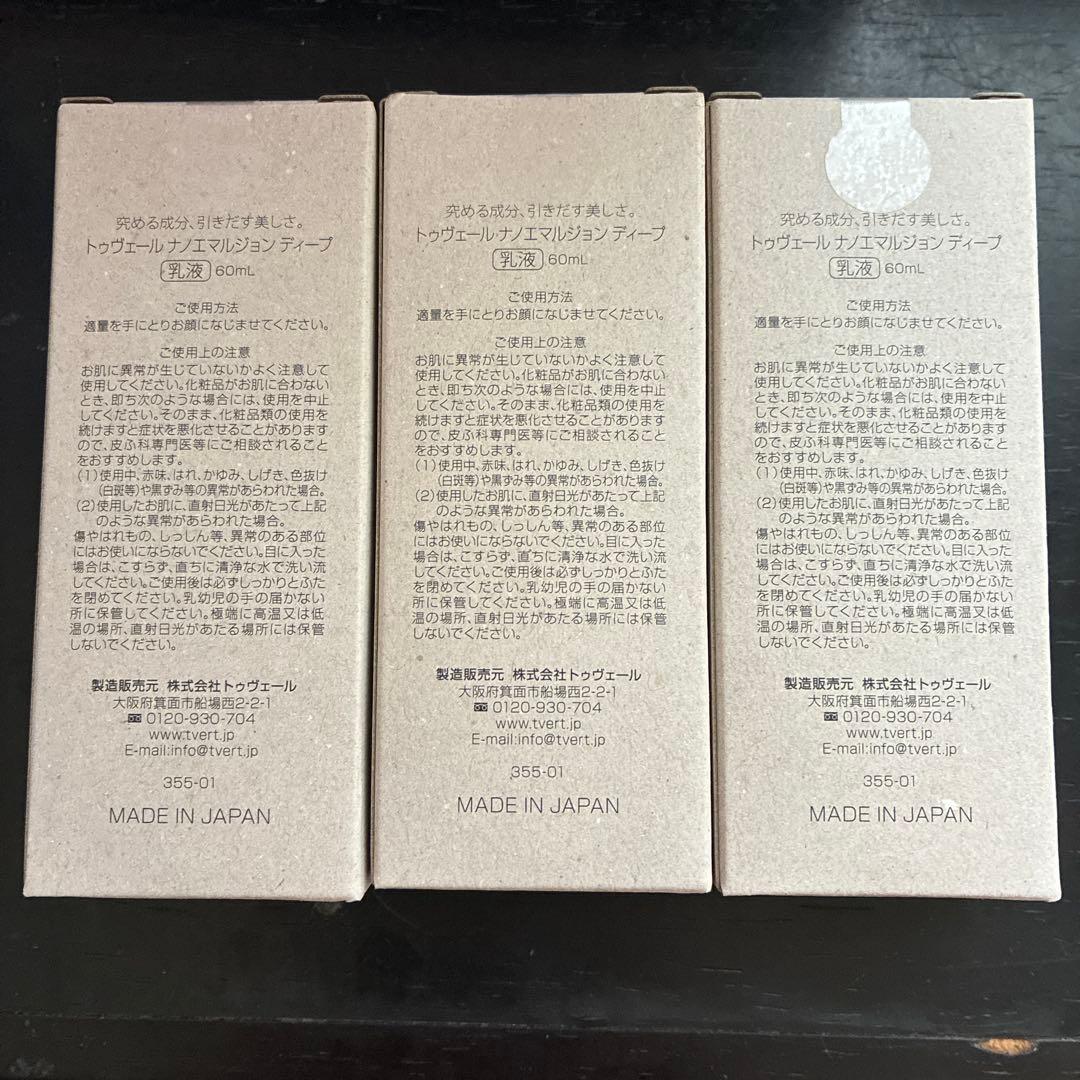 究める成分、引きだす美しさ。
トゥヴェール ナノエマルジョン ディープ
乳液 60mL
ご使用方法
適量を手にとりお顔になじませてください。
ご使用上の注意
お肌に異常が生じていないかよく注意して
使用してください。化粧品がお肌に合わない
とき、即ち次のような場合には、使用を中止
してください。そのまま、化粧品類の使用を
続けますと症状を悪化させることがあります
ので、皮ふ科専門医等にご相談されること
をおすすめします。
(1)使用中、赤味、はれ、かゆみ、しげき、色抜け
(白斑等)や黒ずみ等の異常があらわれた場合。
(2)使用したお肌に、直射日光があたって上記
のような異常があらわれた場合。
傷やはれもの、しっしん等、異常のある部位
にはお使いにならないでください。目に入った
場合は、こすらず、直ちに清浄な水で洗い流
してください。ご使用後は必ずしっかりとふた
を閉めてください。乳幼児の手の届かない
所に保管してください。極端に高温又は低
温の場所、直射日光があたる場所には保管
しないでください。
製造販売元 株式会社トゥヴェール
大阪府箕面市船場西2-2-1
0120-930-704
www.tvert.jp
E-mail:info@tvert.jp
355-01
MADE IN JAPAN
究める成分、引きだす美しさ。
トゥヴェール ナノエマルジョン ディープ
乳液 60mL
ご使用方法
適量を手にとりお顔になじませてください。
ご使用上の注意
お肌に異常が生じていないかよく注意して
使用してください。化粧品がお肌に合わない
とき、即ち次のような場合には、使用を中止
してください。そのまま、化粧品類の使用を
続けますと症状を悪化させることがあります
ので、皮ふ科専門医等にご相談されること
をおすすめします。
(1)使用中、赤味、はれ、かゆみ、しげき、色抜け
(白斑等)や黒ずみ等の異常があらわれた場合。
(2)使用したお肌に、直射日光があたって上記
のような異常があらわれた場合。
傷やはれもの、しっしん等、異常のある部位
にはお使いにならないでください。目に入った
場合は、こすらず、直ちに清浄な水で洗い流
してください。ご使用後は必ずしっかりとふた
を閉めてください。乳幼児の手の届かない
所に保管してください。極端に高温又は低
温の場所、直射日光があたる場所には保管
しないでください。
製造販売元 株式会社トゥヴェール
大阪府箕面市船場西2-2-1
0120-930-704
www.tvert.jp
E-mail:info@tvert.jp
355-01
MADE IN JAPAN
究める成分、引きだす美しさ。
トゥヴェール ナノエマルジョン ディープ
乳液 60mL
ご使用方法
適量を手にとりお顔になじませてください。
ご使用上の注意
お肌に異常が生じていないかよく注意して
使用してください。化粧品がお肌に合わない
とき、即ち次のような場合には、使用を中止
してください。そのまま、化粧品類の使用を
続けますと症状を悪化させることがあります
ので、皮ふ科専門医等にご相談されること
をおすすめします。
(1)使用中、赤味、はれ、かゆみ、しげき、色抜け
(白斑等)や黒ずみ等の異常があらわれた場合。
(2)使用したお肌に、直射日光があたって上記
のような異常があらわれた場合。
傷やはれもの、しっしん等、異常のある部位
にはお使いにならないでください。目に入った
場合は、こすらず、直ちに清浄な水で洗い流
してください。ご使用後は必ずしっかりとふた
を閉めてください。乳幼児の手の届かない
所に保管してください。極端に高温又は低
温の場所、直射日光があたる場所には保管
しないでください。
製造販売元 株式会社トゥヴェール
大阪府箕面市船場西2-2-1
0120-930-704
www.tvert.jp
E-mail:info@tvert.jp
355-01
MADE IN JAPAN